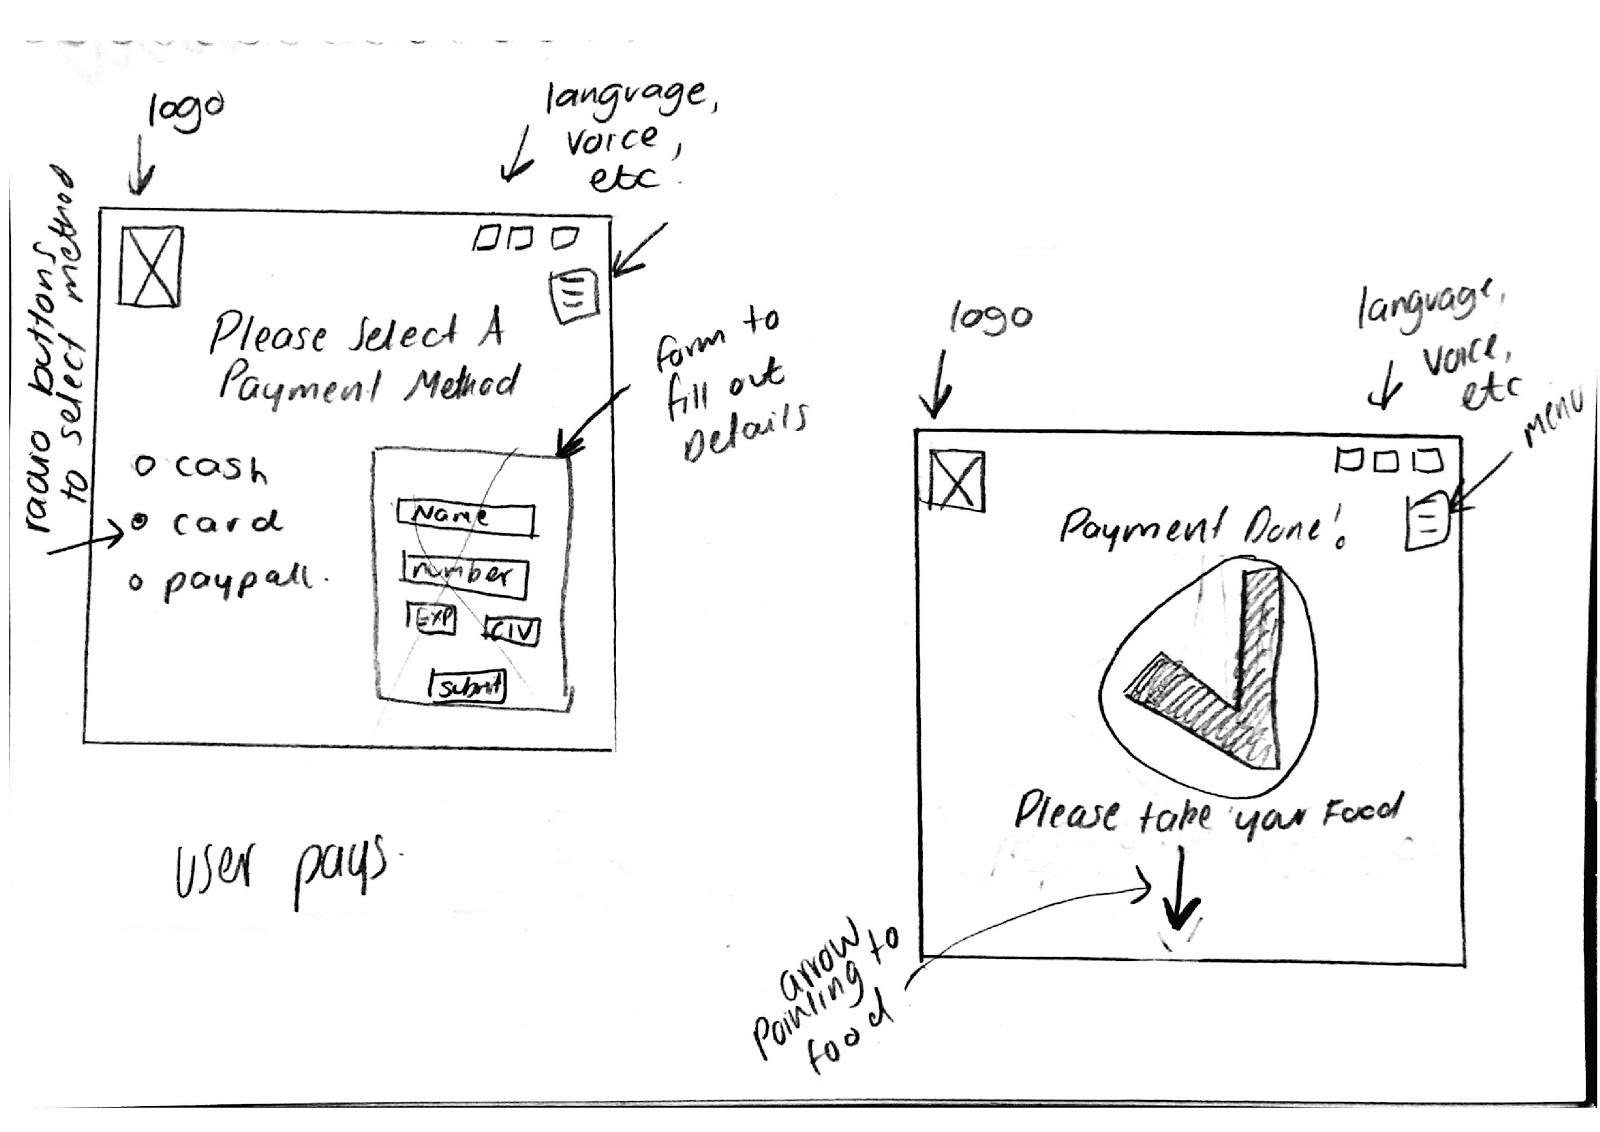 logo
language,
voice,
etc.
radio buttons
to select method
Please Select A
Payment Method
form to
fill out
Details
cash
card
paypall.
Name
number
EXP
CIV
submit
user pays.
logo
language,
voice,
etc
menu
Payment Done!
Please take your Food
arrow
Pointing to
food